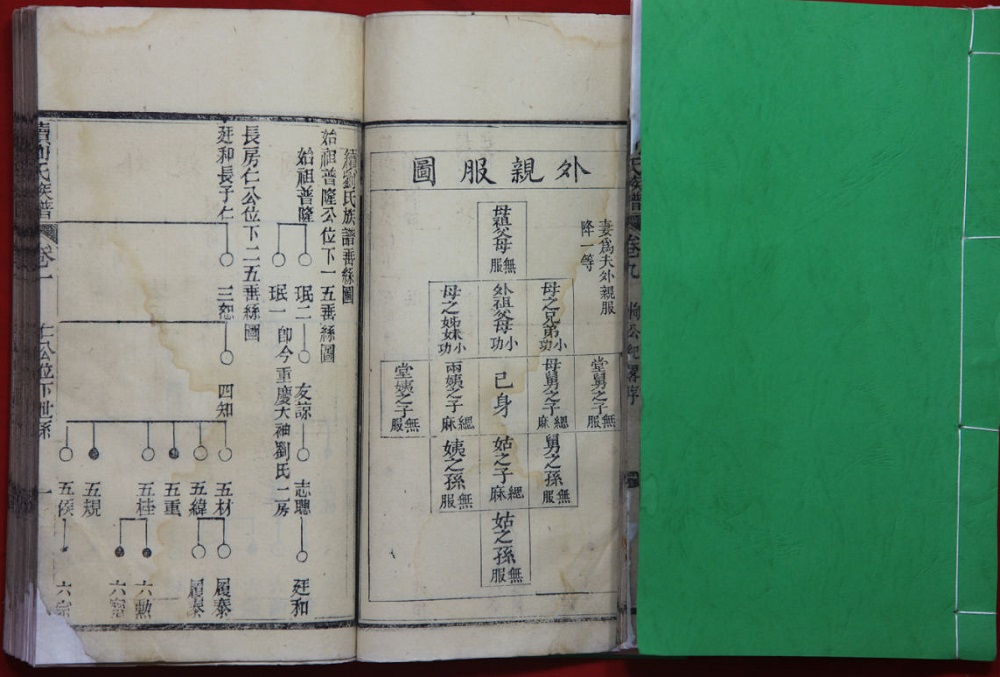 外親服圖
妻爲夫外親服
降一等
母祖父母無服
母之兄弟小功
外祖父母小功
母之姊妹小功
堂舅之子無服
母舅之子緦麻
己身
兩姨之子緦麻
堂姨之子無服
舅之孫無服
姑之子緦麻
姨之孫無服
姑之孫無服
氏族譜
卷九
公紀畧序
續劉氏族譜垂絲圖
始祖普隆公位下一五垂絲圖
始祖普隆
珉二
友諒
志聰
廷和
珉一
卽今重慶大袖劉氏二房
長房仁公位下二五垂絲圖
廷和長子仁
三恕
四知
五材
五緯
五重
五桂
五規
五侯
履泰
履泰
六勲
六
六宗
續劉氏族譜
卷一
仁公位下世系
一